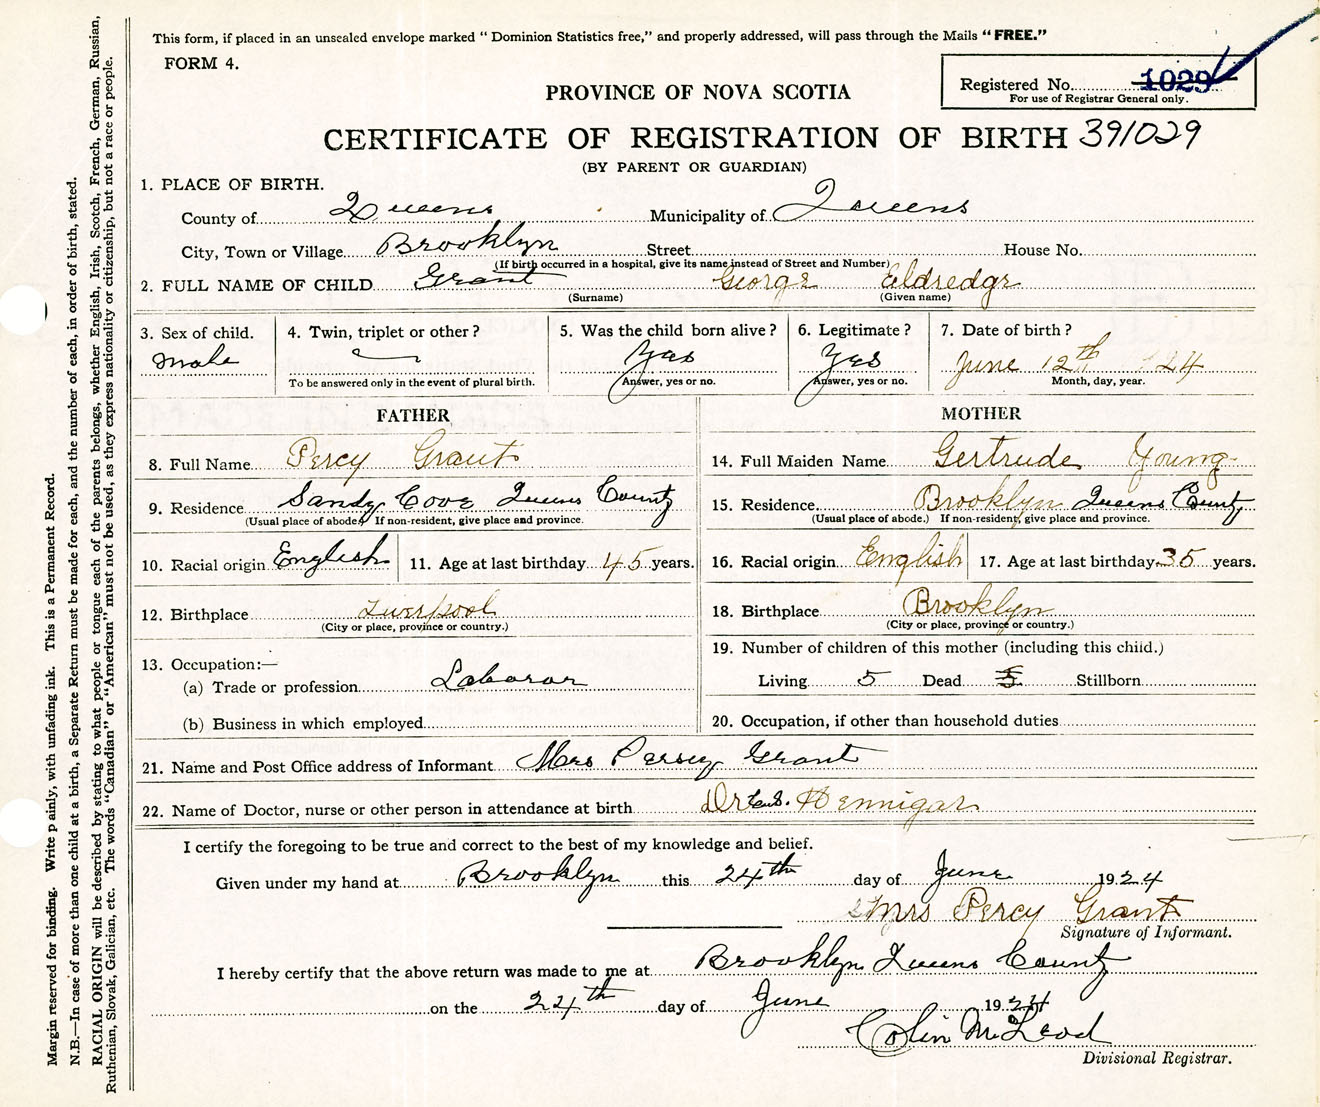 This form, if placed in an unsealed envelope marked " Dominion Statistics free," and properly addressed, will pass through the Mails " FREE."
FORM 4.
Registered No. 1029
For use of Registrar General only.
PROVINCE OF NOVA SCOTIA
CERTIFICATE OF REGISTRATION OF BIRTH 391029
(BY PARENT OR GUARDIAN)
1. PLACE OF BIRTH.
County of Queens Municipality of Queens
City, Town or Village Brooklyn Street House No.
(If birth occurred in a hospital, give its name instead of Street and Number)
2. FULL NAME OF CHILD Grant George Eldredge
(Surname) (Given name)
3. Sex of child. 4. Twin, triplet or other ? 5. Was the child born alive ? 6. Legitimate ? 7. Date of birth ?
male yes yes June 12th 24
To be answered only in the event of plural birth. Answer, yes or no. Answer, yes or no. Month, day, year.
FATHER MOTHER
8. Full Name Percy Grant 14. Full Maiden Name Gertrude Young
9. Residence Sandy Cove Queens County 15. Residence Brooklyn Queens County
(Usual place of abode.) If non-resident, give place and province. (Usual place of abode.) If non-resident, give place and province.
10. Racial origin English 11. Age at last birthday 45 years. 16. Racial origin English 17. Age at last birthday 35 years.
12. Birthplace Liverpool 18. Birthplace Brooklyn
(City or place, province or country.) (City or place, province or country.)
13. Occupation:— 19. Number of children of this mother (including this child.)
(a) Trade or profession Laborar Living 5 Dead 5 Stillborn
(b) Business in which employed 20. Occupation, if other than household duties
21. Name and Post Office address of Informant Mrs Persey Grant
22. Name of Doctor, nurse or other person in attendance at birth Dr Hennigar
I certify the foregoing to be true and correct to the best of my knowledge and belief.
Given under my hand at Brooklyn this 24th day of June 1924
Mrs Percy Grant
Signature of Informant.
I hereby certify that the above return was made to me at Brooklyn Queens County
on the 24th day of June 1924
Colin McLeod
Divisional Registrar.
Margin reserved for binding. Write plainly, with unfading ink. This is a Permanent Record.
N.B.—In case of more than one child at a birth, a Separate Return must be made for each, and the number of each, in order of birth, stated.
RACIAL ORIGIN will be described by stating to what people or tongue each of the parents belongs, whether English, Irish, Scotch, French, German, Russian,
Ruthenian, Slovak, Galician, etc. The words "Canadian" or "American" must not be used, as they express nationality or citizenship, but not a race or people.